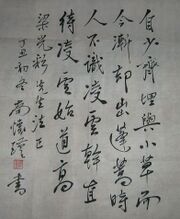 自少齊埋與小草而
今漸却出蓬蒿時
人不識凌雲幹直
待凌雲始道高
梁光松先生法正
丁丑初冬 懷 書